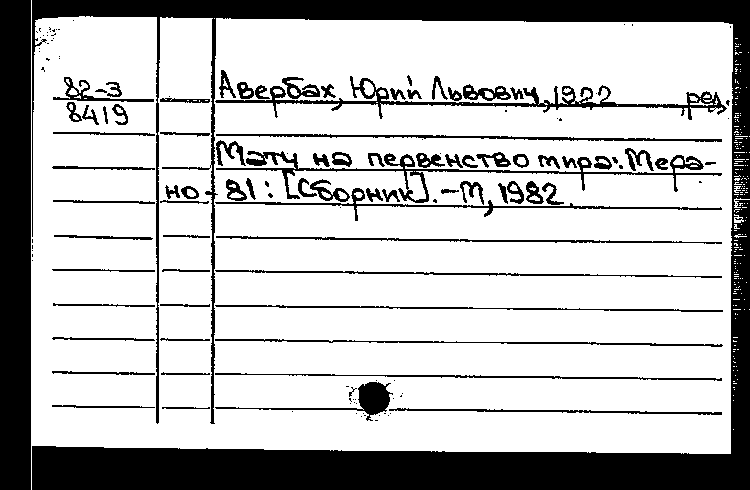 82-3
8419
Авербах, Юрий Львович, 1922 ред.
Матч на первенство мира: Мера-
но-81: [Сборник]. - М, 1982.